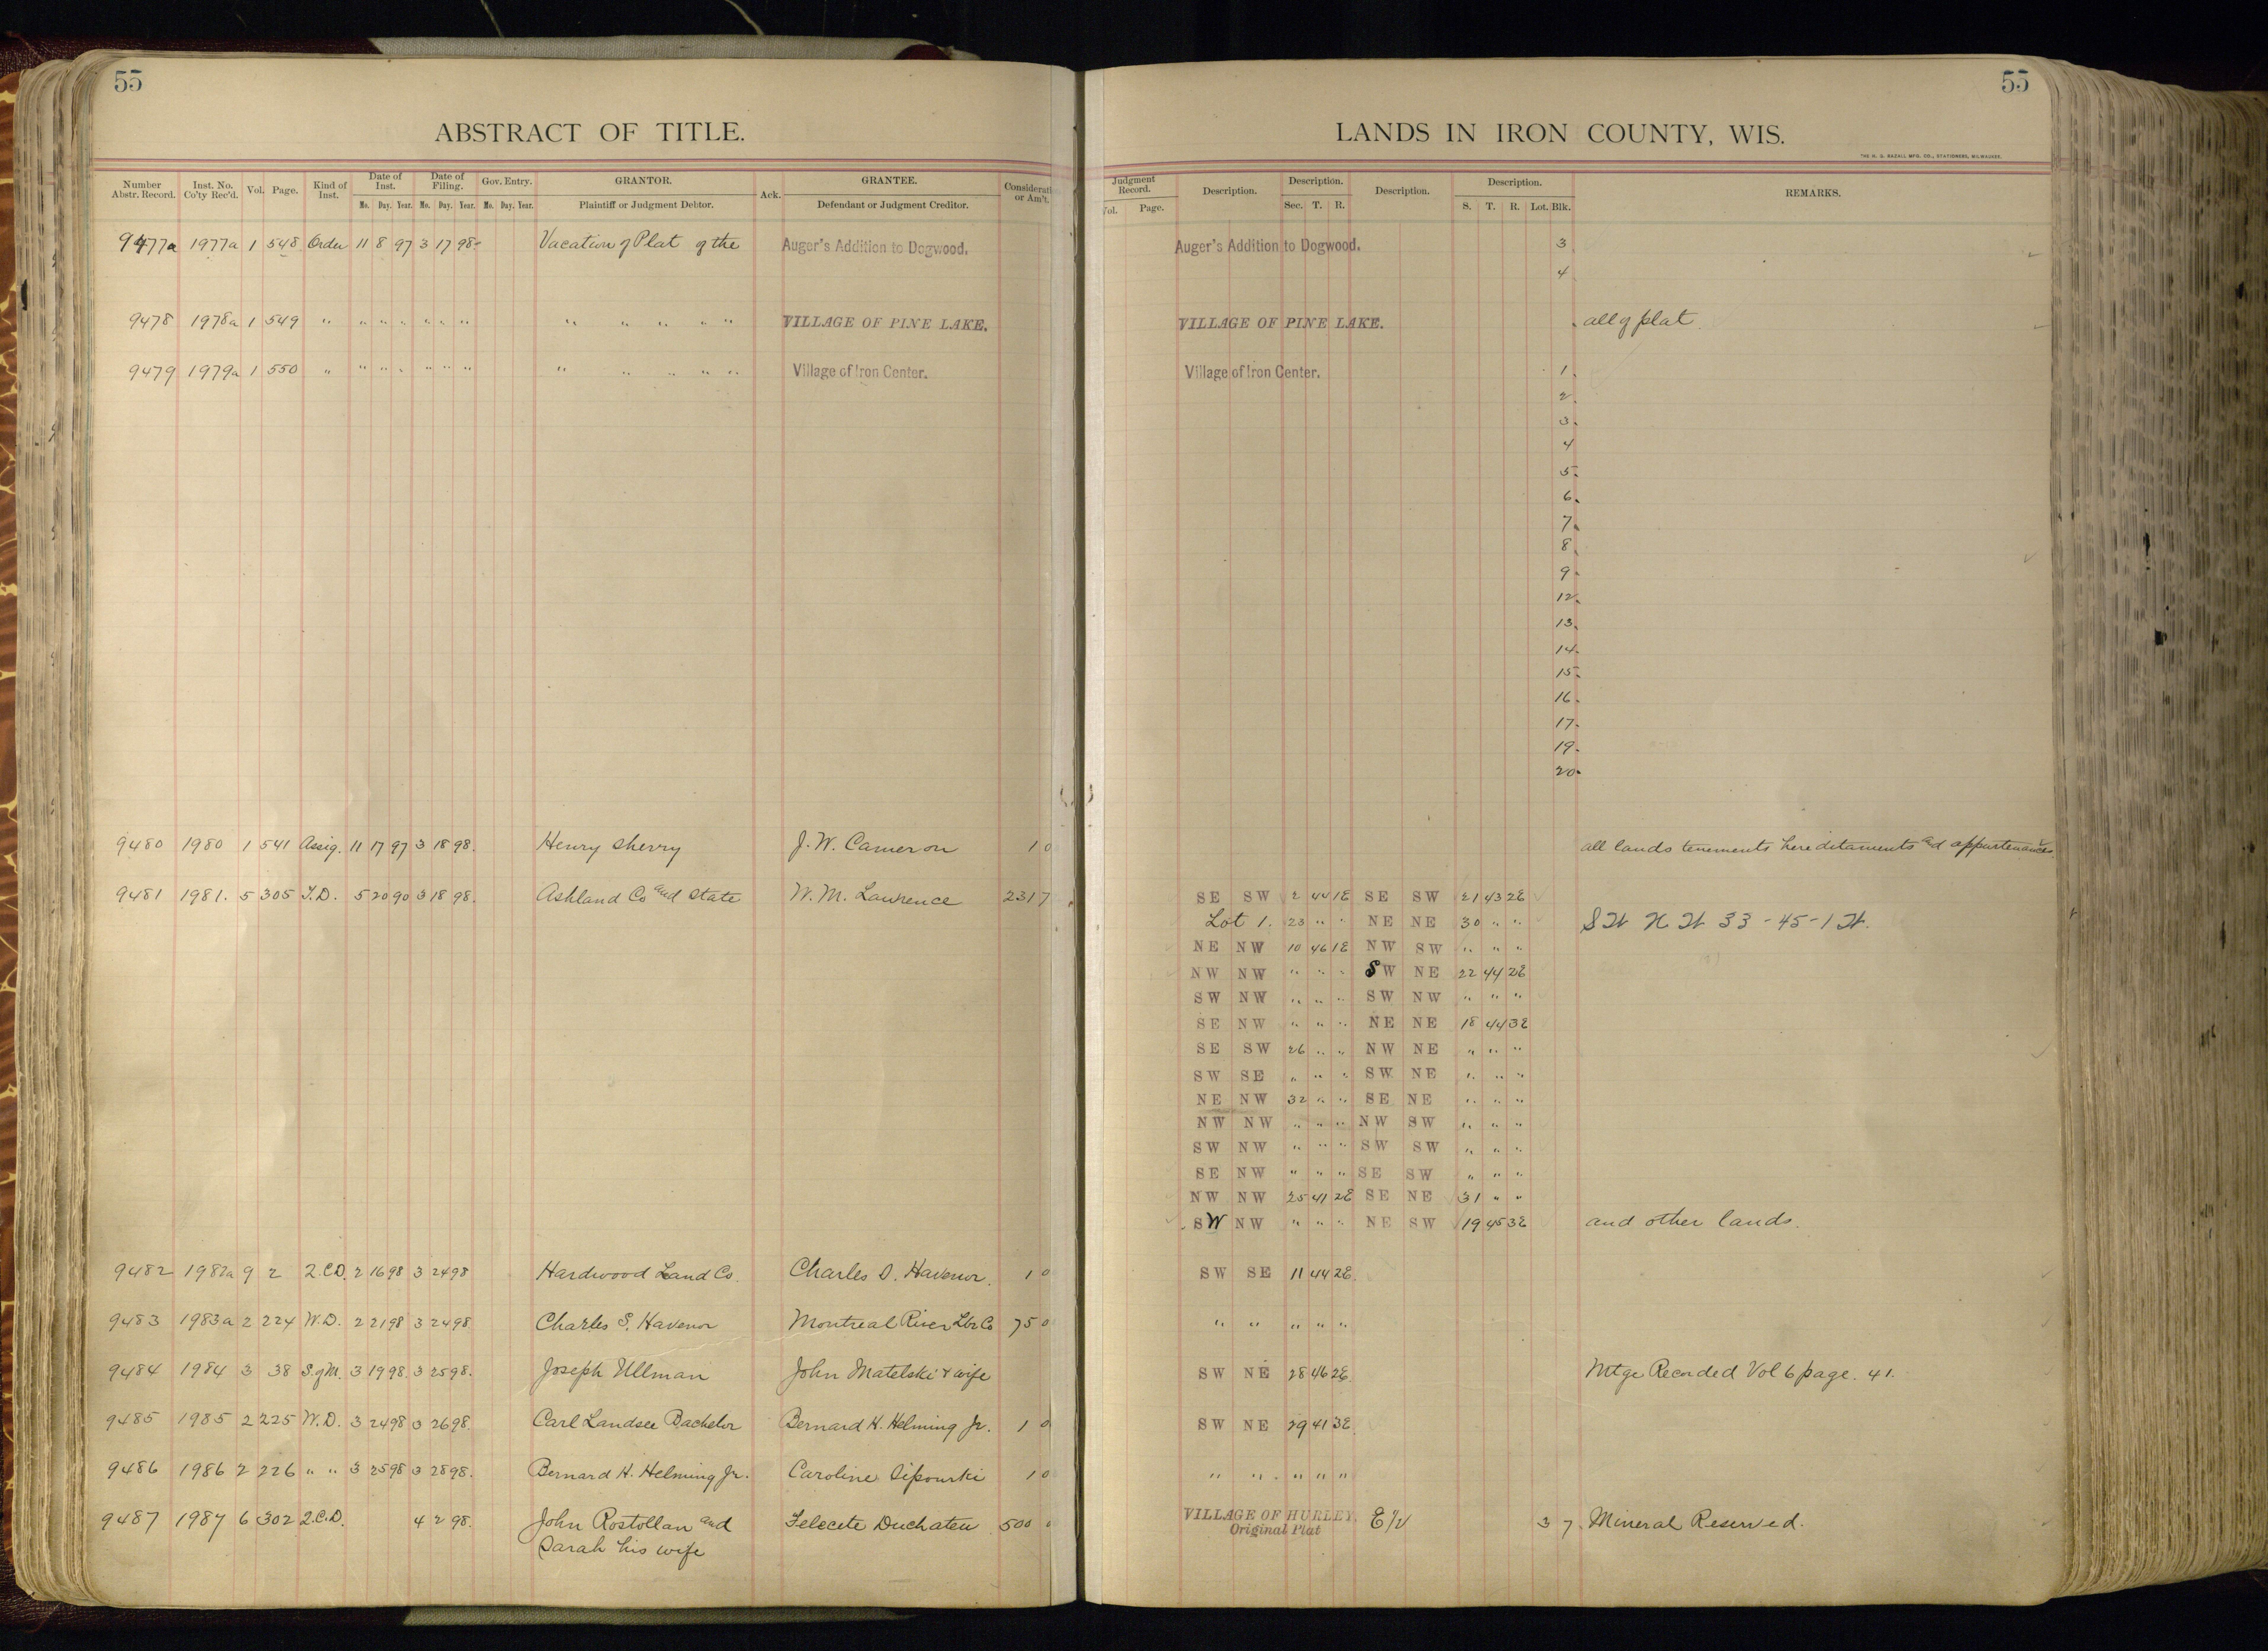 55
ABSTRACT OF TITLE.
Number Abstr. Record. Inst. No. Co'ty Rec'd. Vol. Page. Kind of Inst. Date of Inst. Mo. Day. Year. Date of Filing. Mo. Day. Year. Gov. Entry. Mo. Day. Year. GRANTOR. Plaintiff or Judgment Debtor. Ack. GRANTEE. Defendant or Judgment Creditor. Considerati or Am't.
9477a 1977a 1 548 Order 11 8 97 3 17 98 Vacation of Plat of the Auger's Addition to Dogwood.
9478 1978a 1 549 " " " " " " " " " " " " VILLAGE OF PINE LAKE.
9479 1979a 1 550 " " " " " " " " " " " " Village of Iron Center.
9480 1980 1 541 Assig. 11 17 97 3 18 98. Henry Sherry J. W. Cameron 1 0
9481 1981. 5 305 T.D. 5 20 90 3 18 98. Ashland Co and State W. M. Lawrence 2317
9482 1982a 9 2 2.C.D. 2 16 98 3 24 98 Hardwood Land Co. Charles S. Havenor. 1 0
9483 1983a 2 224 W.D. 2 21 98 3 24 98. Charles S. Havenor Montreal River Lbr Co 75 0
9484 1984 3 38 S. of M. 3 19 98. 3 25 98. Joseph Ullman John Matelski & wife
9485 1985 2 225 W.D. 3 24 98 3 26 98. Carl Landsee Bachelor Bernard H. Helming Jr. 1 0
9486 1986 2 226 " " 3 25 98 3 28 98. Bernard H. Helming Jr. Caroline 1 0
9487 1987 6 302 2.C.D. 4 2 98. John Rostollan and Felecete Duchateu 500
Sarah his wife
55
LANDS IN IRON COUNTY, WIS.
THE H. G. RAZALL MFG. CO., STATIONERS, MILWAUKEE.
Judgment Record. Vol. Page. Description. Description. Sec. T. R. Description. Description. S. T. R. Lot. Blk. REMARKS.
Auger's Addition to Dogwood. 3
4
VILLAGE OF PINE LAKE. all of plat
Village of Iron Center. 1
2
3
4
5
6
7
8
9
12
13
14
15
16
17
19
20
all lands tenements hereditaments and appurtenances
SE SW 2 44 1E SE SW 21 43 2E
Lot 1. 23 " " NE NE 30 " " S W N W 33 - 45 - 1 W.
NE NW 10 46 1E NW SW " " "
NW NW " " " SW NE 22 44 2E
SW NW " " " SW NW " " "
SE NW " " " NE NE 18 44 3E
SE SW 26 " " NW NE " " "
SW SE " " " SW NE " " "
NE NW 32 " " SE NE " " "
NW NW " " " NW SW " " "
SW NW " " " SW SW " " "
SE NW " " " SE SW " " "
NW NW 25 41 2E SE NE 31 " "
SW NW " " " NE SW 19 45 3E and other lands.
SW SE 11 44 2E
" " " " "
SW NE 28 46 2E. Mtge Recorded Vol 6 page. 41.
SW NE 29 41 3E
" " " " "
VILLAGE OF HURLEY E 1/2 3 7 Mineral Reserved.
Original Plat